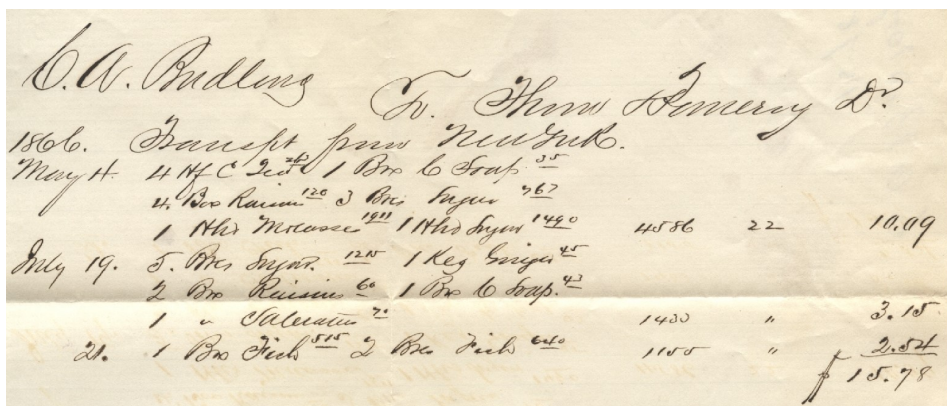 C. A. Budlong
To Thos Pomeroy Dr.
1866. Transpt from New York.
May 4. 4 Hf C Tea 1 Box C Soap 35
4 Box Raisins 120 3 Bbs Sugar 767
1 Hhd Molasses 1911 1 Hhd Sugar 1490 4586 22 10.09
July 19. 5 Bbs Sugar. 1215 1 Keg Ginger 45
2 Box Raisins 60 1 Box C Soap. 43
1 " Saleratus 70 1433 " 3.15
21. 1 Bbs Fish 515 2 Bbs Fish 640 1155 " 2.54
$ 15.78